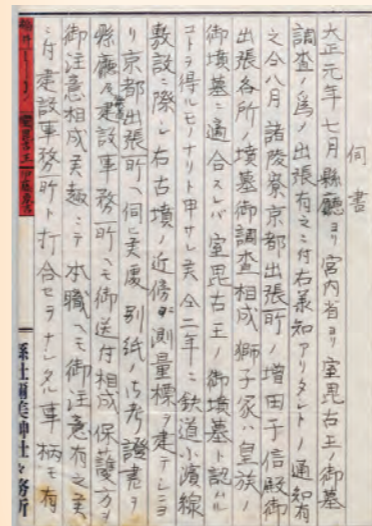 伺書
大正元年七月縣廳ヨリ宮内省ヨリ室毘古王ノ御墓
調査ノ為ノ出張有之ニ付右承知アリタシトノ通知有
之仝八月諸陵寮京都出張所ノ増田子信殿御
出張各所ノ墳墓御調査相成獅子冢ハ皇族ノ
御墳墓ニ適合スレバ室毘古王ノ御墳墓ト認ムル
コトヲ得ルモノナリト申サレ候仝二年ニ鉄道小濱線
敷設ニ際シ右古墳ノ近傍ヲ測量標ヲ建テシニヨ
リ京都出張所ヘ伺ニ候處別紙ノ考證書ヲ
縣廳及建設事務所ヘモ御送付相成保護方ヲ
御注意相成候趣ニテ本職ヘモ御注意有之候
ニ付建設事務所ト打合セヲナシタル事柄モ有
縣社彌美神社々務所